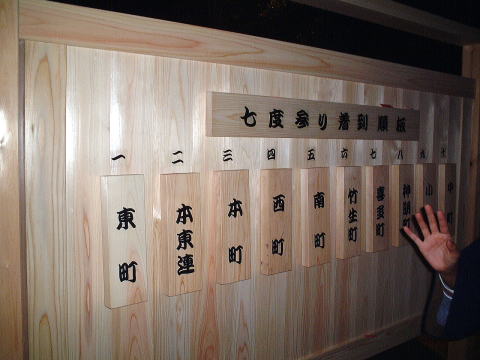 七度参り着到順板
一 二 三 四 五 六 七 八 九 十
東町
本東連
本町
西町
南町
竹生町
喜多町
神明町
小
中町